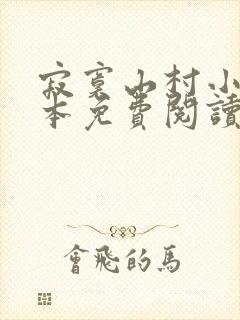 寂寞山村小
本免費閱讀
會飛的馬